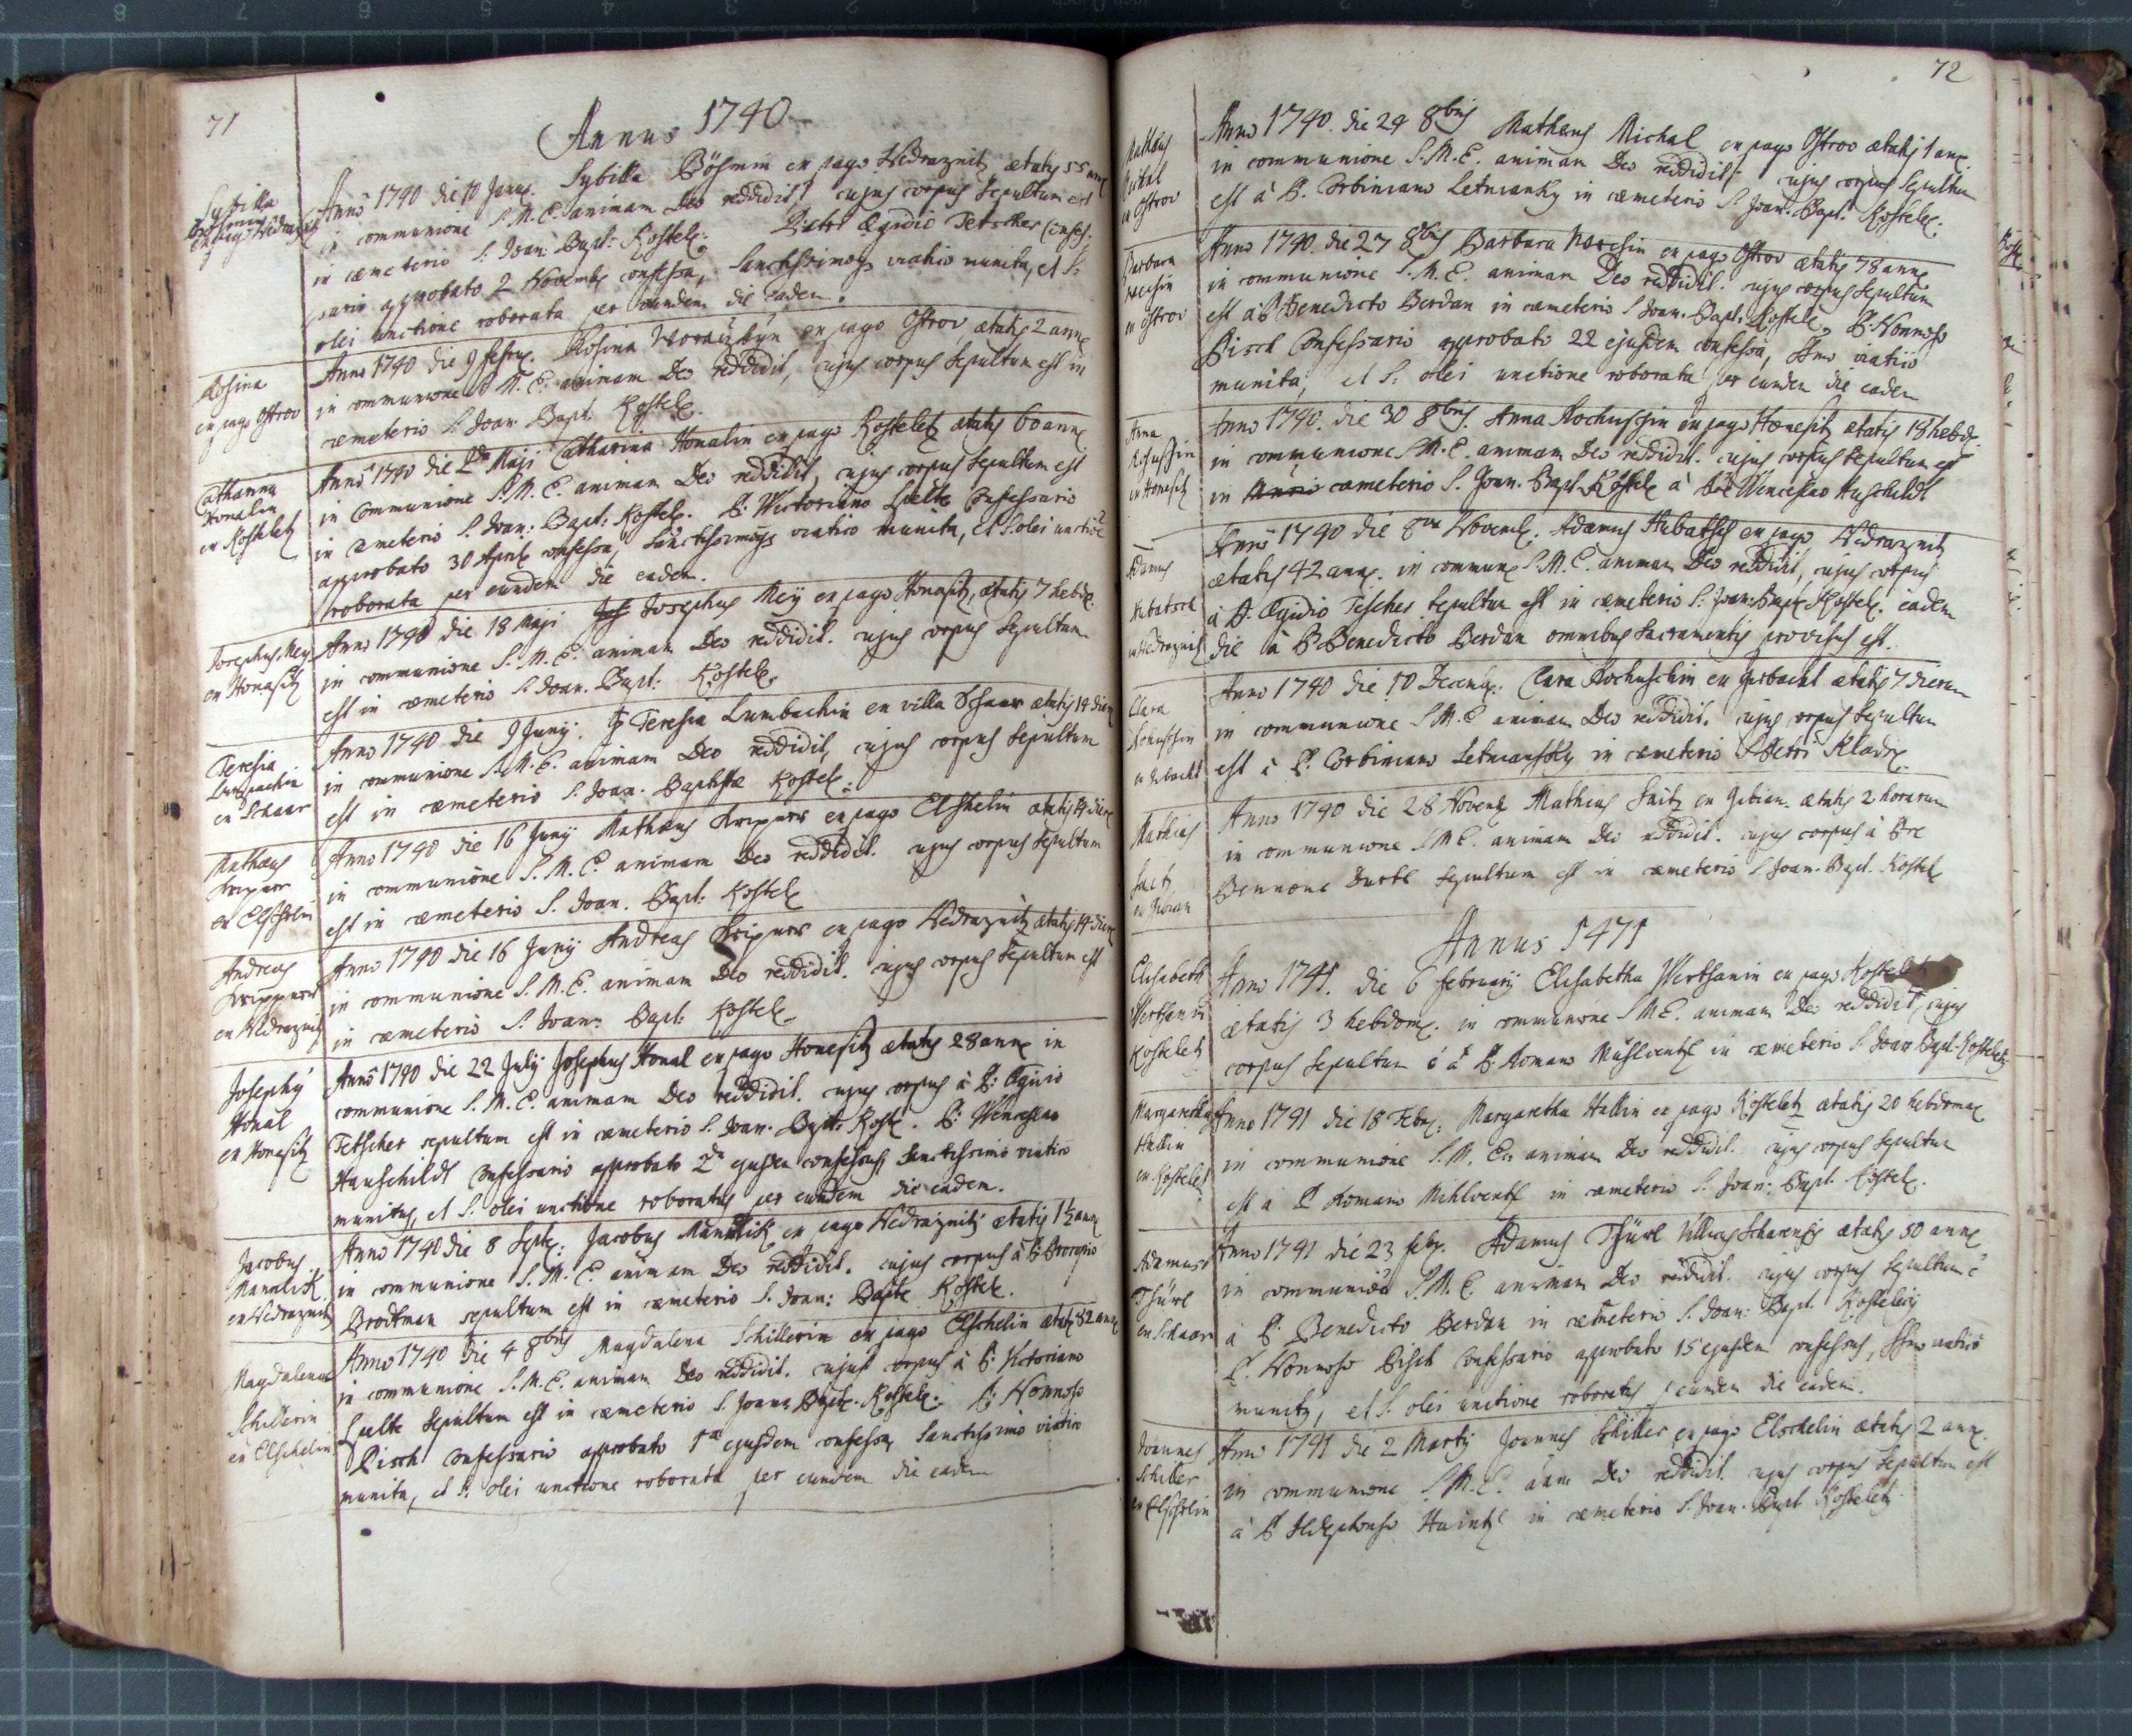 71
Annus 1740
Sybilla
Böhmin
ex pago Wedraznitz
Anno 1740 die 10 Janu. Sybilla Böhmin ex pago Wedraznitz ætatis 55 ann
in communione S.M.E. animam Deo reddidit, cujus corpus sepultum est
in cæmeterio S. Joan: Bapt: Kostele. Patri Ægidio Tetscher Confes-
sario approbato 2 Novembr confessa, Sanctissimoq viatico munita, et S:
olei unctione roborata per eundem die eadem.
Rosina
ex pago Ostrov
Anno 1740 die 9 febru. Rosina ex pago Ostrov, ætatis 2 ann
in communione S.M.E. animam Deo reddidit, cujus corpus sepultum est in
cæmeterio S. Joan. Bapt. Kostele.
Catharina
Honalin
ex Kosteletz
Anno 1740 die 2da Maji Catharina Honalin ex pago Kosteletz ætatis 60 ann
in Communione S.M.E. animam Deo reddidit, cujus corpus sepultum est
in cæmeterio S. Joan: Bapt: Kostele. P. Victoriano Lielte Confessario
approbato 30 April confessa, Sanctissimoq viatico munita, et S. olei unctiõe
roborata per eundem die eadem.
Josephus Mey
ex Honositz
Anno 1740 die 18 Maji Josephus Meÿ ex pago Honositz, ætatis 7 hebdo.
in communione S.M.E. animam Deo reddidit. cujus corpus sepultum
est in cæmeterio S. Joan. Bapt: Kostele.
Teresia
Lumbachin
ex Schaar
Anno 1740 die 9 Junij. Teresia Lumbachin ex villa Schaar ætatis 14 dier
in communione S.M.E. animam Deo reddidit, cujus corpus sepultum
est in cæmeterio S. Joan. Baptistæ Kostele.
Mathæus
Kripner
ex Elschelin
Anno 1740 die 16 Junij Mathæus Kripner ex pago Elschelin ætatis 14 dier
in communione S.M.E. animam Deo reddidit. cujus corpus sepultum
est in cæmeterio S. Joan. Bapt: Kostele
Andreas
Krippner
ex Wedraznitz
Anno 1740 die 16 Junij Andreas Kripner ex pago Wedraznitz ætatis 14 dier
in communione S.M.E. animam Deo reddidit. cujus corpus sepultum est
in cæmeterio S. Joan: Bapt: Kostele
Josephus
Honal
ex Honositz
Anno 1740 die 22 July Josephus Honal ex pago Honesitz ætatis 28 ann in
communione S.M.E. animam Deo reddidit. cujus corpus à P: Ægidio
Tetscher sepultum est in cæmeterio S. Joan. Bapt: Koste. P: Wenceslao
Hauschildt confessario approbato 2a ejusdem confessus, Sanctissimo viatico
munitus, et S. olei unctione roboratus per eundem die eadem.
Jacobus
Manalik
ex Wedraznitz
Anno 1740 die 8 Septe: Jacobus Manalik ex pago Wedraznitz ætatis 1½ ann
in communione S.M.E. animam Deo reddidit. cujus corpus à P: Procopio
Brodtman sepultum est in cæmeterio S. Joan: Bapte Kostele.
Magdalena
Schillerin
ex Elschelin
Anno 1740 die 4 8bris Magdalena Schillerin ex pago Elschelin ætatis 82 ann
in communione S.M.E. animam Deo reddidit. cujus corpus à P: Victoriano
Lielte sepultum est in cæmeterio S. Joann Bapt. Kostele. P: Nonnoso
Pisch confessario approbato 1a ejusdem confessa, Sanctissimo viatico
munita, et S: olei unctione roborata per eundem die eadem
72
Mathæus
Michal
ex Ostrov
Anno 1740. die 24 8bris Mathæus Michal ex pago Ostrov ætatis 1 ann.
in communione S.M.E. animam Deo reddidit, cujus corpus sepultum
est à P. Corbiniano Letmansky in cæmeterio S. Joan. Bapt. Kostele.
Barbara
ex Ostrov
Anno 1740. die 27 8bris Barbara ex pago Ostrov ætatis 78 ann
in communione S.M.E. animam Deo reddidit. cujus corpus sepultum
est à P Benedicto Berdan in cæmeterio S Joan. Bapt: Kostele. P. Nonnoso
Pisch Confessario approbato 22 ejusdem confessa, SSmo viatico
munita, et S: olei unctione roborata per eundem die eadem
Anna
ex Honositz
Anno 1740. die 30 8bris. Anna Kochuschin ex pago Honesitz ætatis 18 hebdo.
in communione S.M.E. animam Deo reddidit. cujus corpus sepultum est
in cæmeterio S. Joan. Bapt. Kostele à Wenceslao Hauschildt
Adamus
ex Wedraznitz
Anno 1740 die Novemb. Adamus ex pago Wedraznitz
ætatis 42 ann. in commune S.M.E. animam Deo reddidit, cujus corpus
à P. Ægidio Tescher sepultum est in cæmeterio S. Joan: Bapt Kostele. eadem
die à P. Benedicto Berdan omnibus sacramentis provisus est.
Clara
Kohuschin
Anno 1740 die 10 Decemb. Clara Kochuschin ex ætatis 7 dierum
in communione S.M.E animam Deo reddidit. cujus corpus sepultum
est à P. Corbiniano Letmansky in cæmeterio S Petri Kladr.
Mathias
Anno 1740 die 28 Novemb Mathias ex ætatis 2 horarum
in communione S.M.E. animam Deo reddidit. cujus corpus à Pre
Bennone sepultum est in cæmeterio S Joan. Bapt. Kostel
Annus 1471
Elisabeth
Kosteletz
Anno 1741. die 6 february Elisabetha ex pago Kosteletz
ætatis 3 hebdom. in communione S.M.E. animam Deo reddidit, cujus
corpus sepultum ẽ à P. Romano Mühlwentzl in cæmeterio S Joan Bapt. Kosteletz
Margaretha
Hallin
ex Kosteletz
Anno 1741 die 18 Febr. Margaretha Hallin ex pago Kosteletz ætatis 20 hebdomad
in communione S.M.E. animam Deo reddidit. cujus corpus sepultum
est à P Romano Mihlwentzl in cæmeterio S. Joan: Bapt. Kostele.
Adamus
Thürl
ex Schaar
Anno 1741 die 23 febr. Adamus Thürl Villicus Scharensis ætatis 50 ann
in communiõe S.M.E. animam Deo reddidit. cujus corpus sepultum ẽ
à P. Benedicto Berdan in cæmeterio S. Joan: Bapt. Kosteletz
P. Nonnoso Pisch confessario approbato 15 ejusdem confessus, SSmo viatico
munitus, et S. olei unctione roboratus p eundem die eadem.
Joannes
Schiller
ex Elschelin
Anno 1741 die 2 Marty Joannes Schiller ex pago Elschelin ætatis 2 ann.
in communione S.M.E. aãm Deo reddidit. cujus corpus sepultum est
à P. Ildephonso Haintzl in cæmeterio S. Joan. Bapt Kosteletz